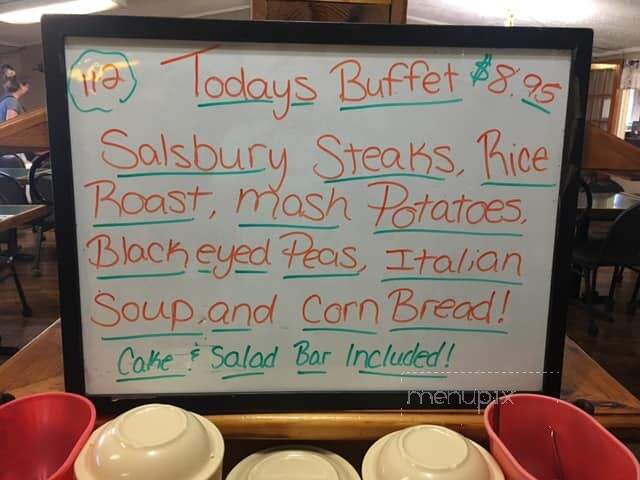 112 Todays Buffet $8.95
Salsbury Steaks, Rice
Roast, mash Potatoes,
Black eyed Peas, Italian
Soup, and Corn Bread!
Cake & Salad Bar Included!
menupix